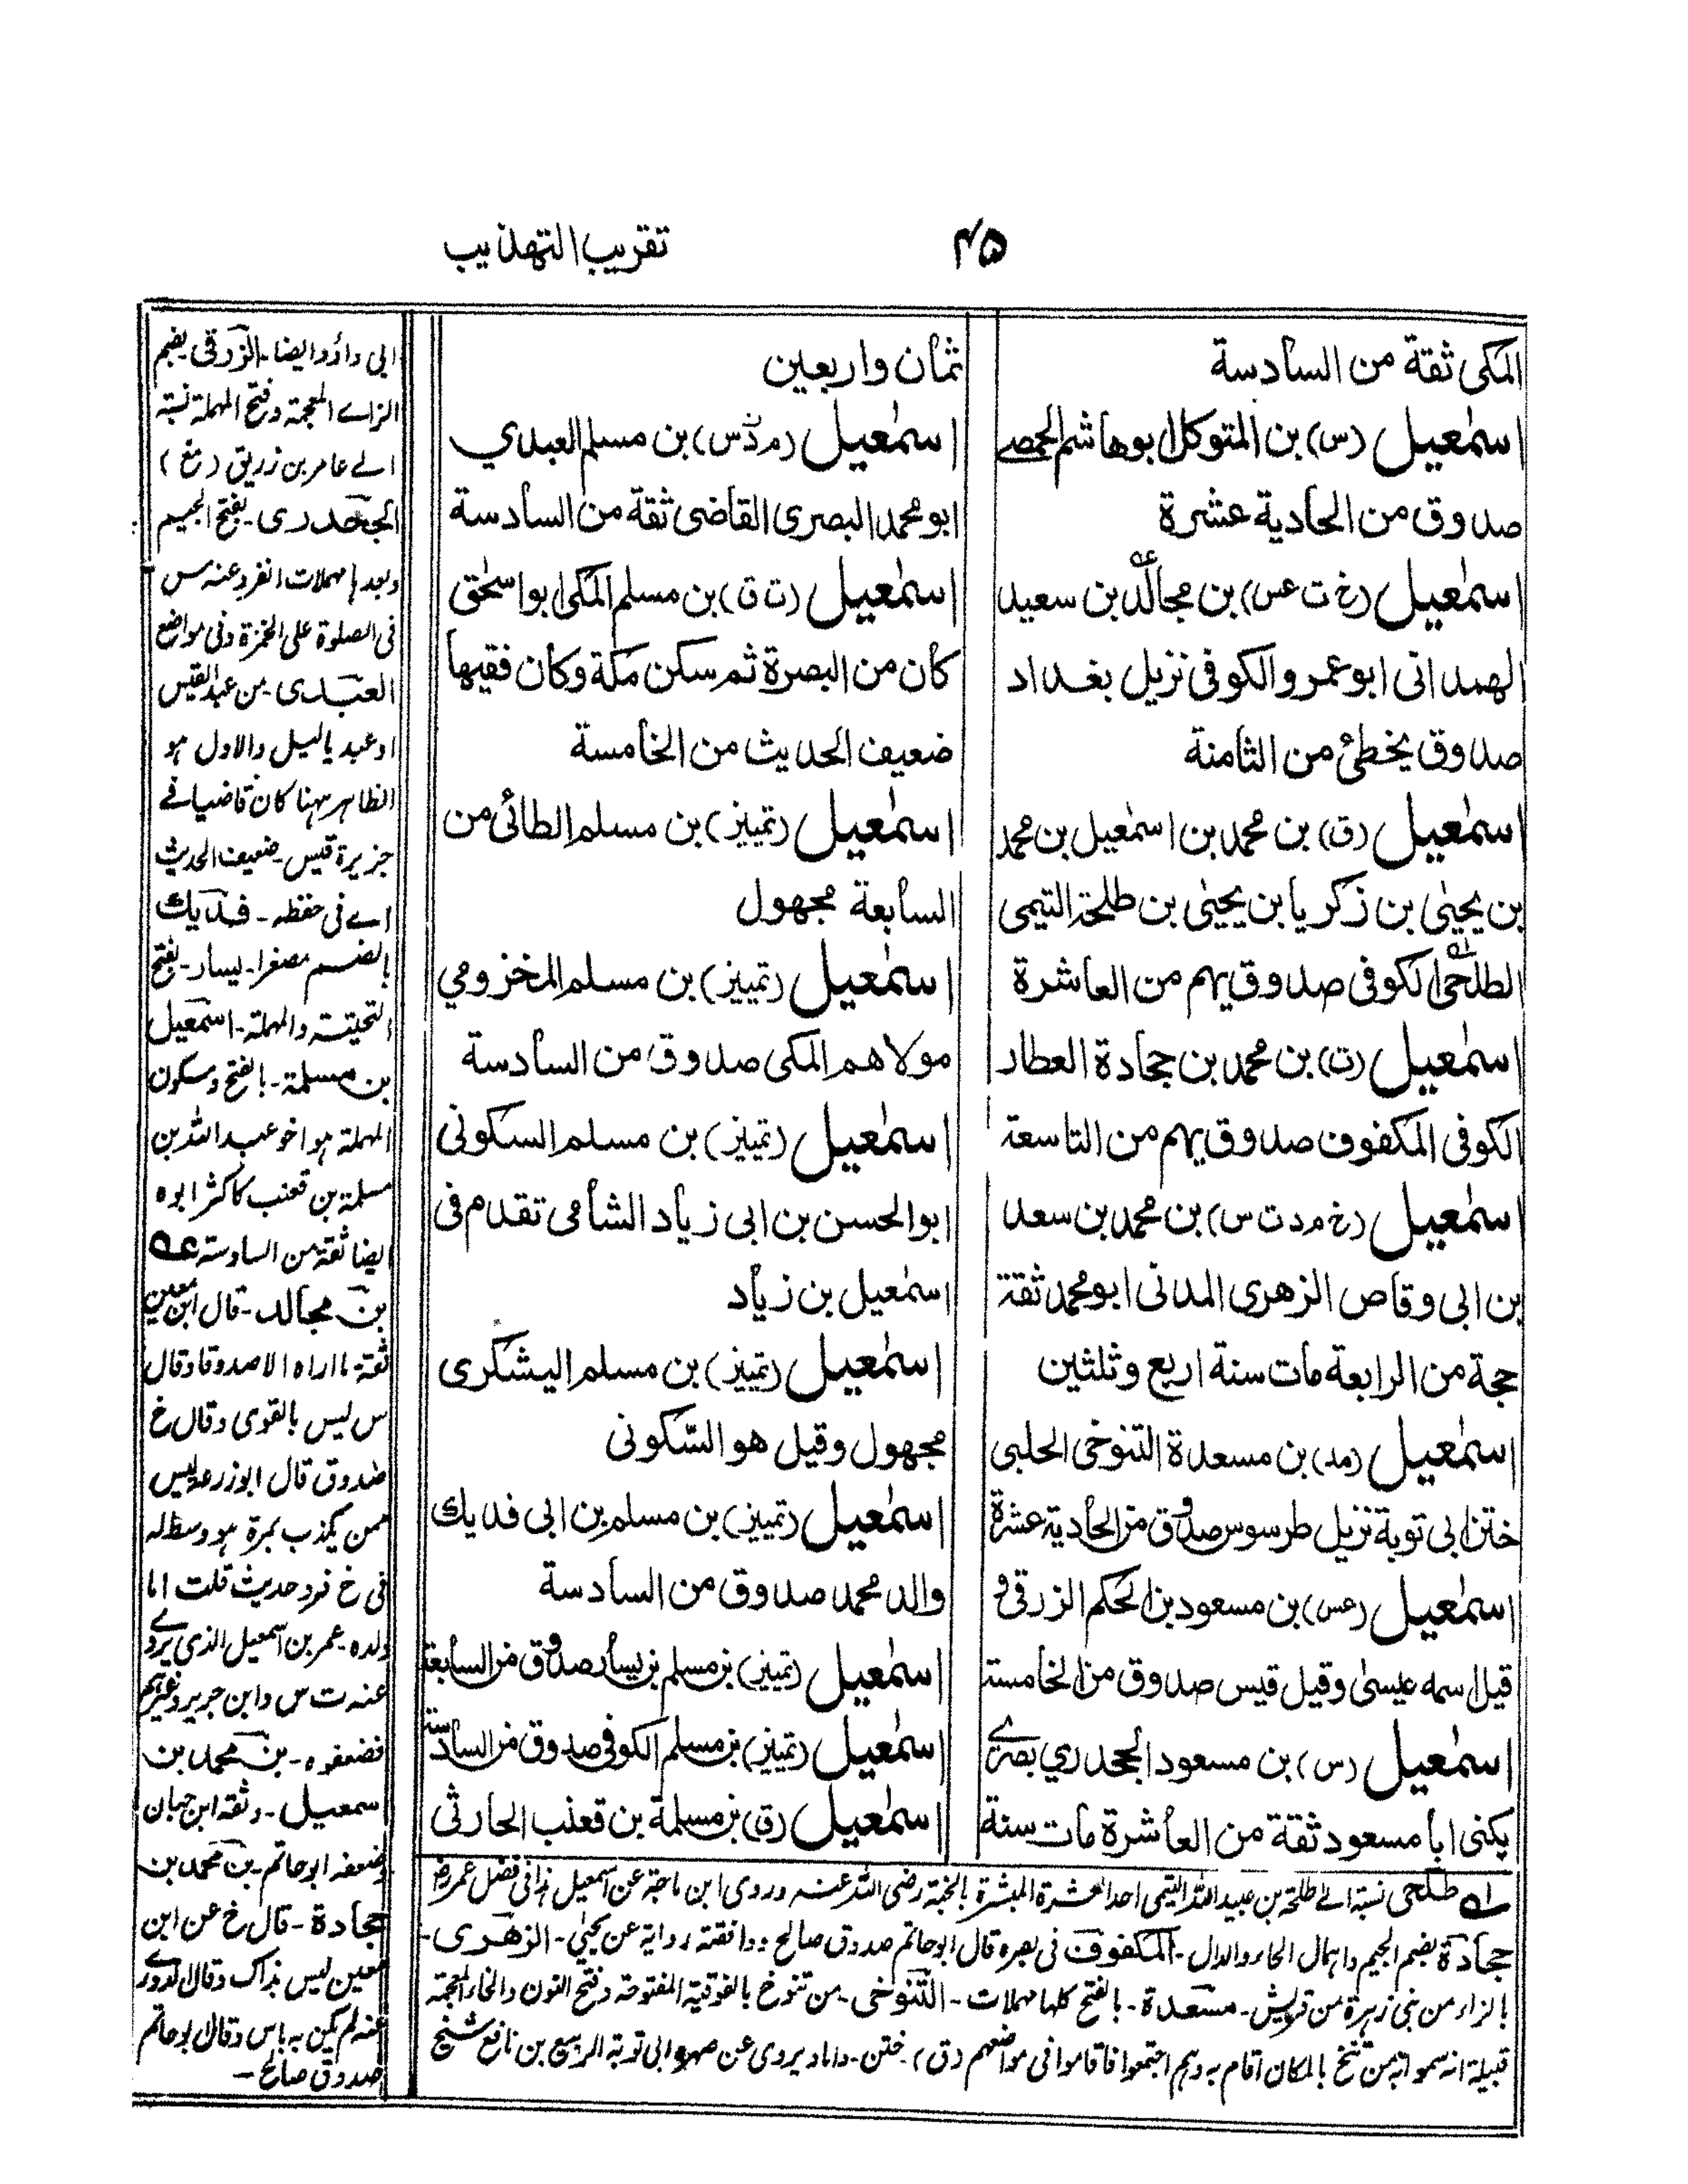 ۴۵
تقريب التهذيب
المكى ثقة من السادسة
اسمٰعيل (س) بن المتوكل ابو هاشم الحمصے
صدوق من الحادية عشرة
اسمٰعيل (خ ت عس) بن مجالد بن سعيد
الهمدانى ابو عمرو الكوفى نزيل بغداد
صدوق يخطئ من الثامنة
اسمٰعيل (ق) بن محمد بن اسمٰعيل بن محمد
بن يحيىٰ بن زكريا بن يحيىٰ بن طلحة التيمى
الطلحى الكوفى صدوق يهم من العاشرة
اسمٰعيل (ت) بن محمد بن جحادة العطار
الكوفى المكفوف صدوق يهم من التاسعة
اسمٰعيل (خ م د ت س) بن محمد بن سعد
بن ابى وقاص الزهرى المدنى ابو محمد ثقة
حجة من الرابعة مات سنة اربع وثلثين
اسمٰعيل (مد) بن مسعدة التنوخى الحلبى
ختن ابى توبة نزيل طرسوس صدوق من الحادية عشرة
اسمٰعيل (عس) بن مسعود بن الحكم الزرقى و
قيل اسمه عيسىٰ وقيل قيس صدوق من الخامسة
اسمٰعيل (س) بن مسعود الجحدري بصرے
يكنى ابا مسعود ثقة من العاشرة مات سنة
ثمان واربعين
اسمٰعيل (م ت س) بن مسلم العبدي
ابو محمد البصرى القاضى ثقة من السادسة
اسمٰعيل (ت ق) بن مسلم المكى ابو اسحٰق
كان من البصرة ثم سكن مكة وكان فقيها
ضعيف الحديث من الخامسة
اسمٰعيل (تمييز) بن مسلم الطائى من
السابعة مجهول
اسمٰعيل (تمييز) بن مسلم المخزومي
مولاهم المكى صدوق من السادسة
اسمٰعيل (تمييز) بن مسلم السكونى
ابو الحسن بن ابى زياد الشامى تقدم فى
اسمٰعيل بن زياد
اسمٰعيل (تمييز) بن مسلم اليشكرى
مجهول وقيل هو السّكونى
اسمٰعيل (تمييز) بن مسلم بن ابى فديك
والد محمد صدوق من السادسة
اسمٰعيل (تمييز) بن مسلم بن يسار صدوق من السابعة
اسمٰعيل (تمييز) بن مسلم الكوفى صدوق من السادسة
اسمٰعيل (ق) بن مسلمة بن قعنب الحارثى
ابى داؤد ايضا - الزرقى بضم
الزاے المعجمة وفتح المهملة نسبة
الے عامر بن زريق
الجحدرى - بفتح الجيم
وبعدها مهملات انفرد عنه س
فى الصلوة على الخمرة وفى مواضع
العبدى - من عبد القيس
او عبد ياليل والاول هو
الظاهر ههنا كان قاضيا فے
جزيرة قيس - ضعيف الحديث
اے فى حفظه - فديك
بالضم مصغرا - يسار - بفتح
التحتية والمهملة - اسمعيل
بن مسلمة - بالفتح وسكون
المهملة هو اخو عبد الله بن
مسلمة بن قعنب كاكثر ابوه
ايضا ثقة من السادسة عه
بن مجالد - قال ابن معين
ثقة - ما اراه الا صدوقا وقال
س ليس بالقوى وقال خ
صدوق قال ابو زرعة ليس
ممن يكذب بمرة هو وسط له
فى خ فرد حديث قلت اما
ولده - عمر بن اسمعيل الذى يروے
عنه ت س وابن جرير وغيرهم
فضعفوه - بن محمد بن
اسمعيل - وثقه ابن حبان
وضعفه ابو حاتم - بن محمد بن
جحادة - قال خ عن ابن
معين ليس بذاك وقال الدورے
عنه لم يكن به باس وقال ابو حاتم
صدوق صالح -
طلحى نسبة الے طلحة بن عبيد الله التيمى احد العشرة المبشرة بالجنة رضى الله عنه وروى ابن ماجة عن اسمعيل هذا فى فضل عمر رض
جحادة بضم الجيم واهمال الحاء والدال - المكفوف فى بصره قال ابو حاتم صدوق صالح ووافقته رواية عن يحيى - الزهرى -
بالزاء من بنى زهرة من قريش - مسعدة - بالفتح كلها مهملات - التنوخى - من تنوخ بالفوقية المفتوحة وفتح النون والخاء المعجمة
قبيلة انه سموا به من تنخ بالمكان اقام به وهم اجتمعوا فاقاموا فى مواضعهم (ق) - ختن - داماد يروى عن صهره ابى توبة الربيع بن نافع شيخ